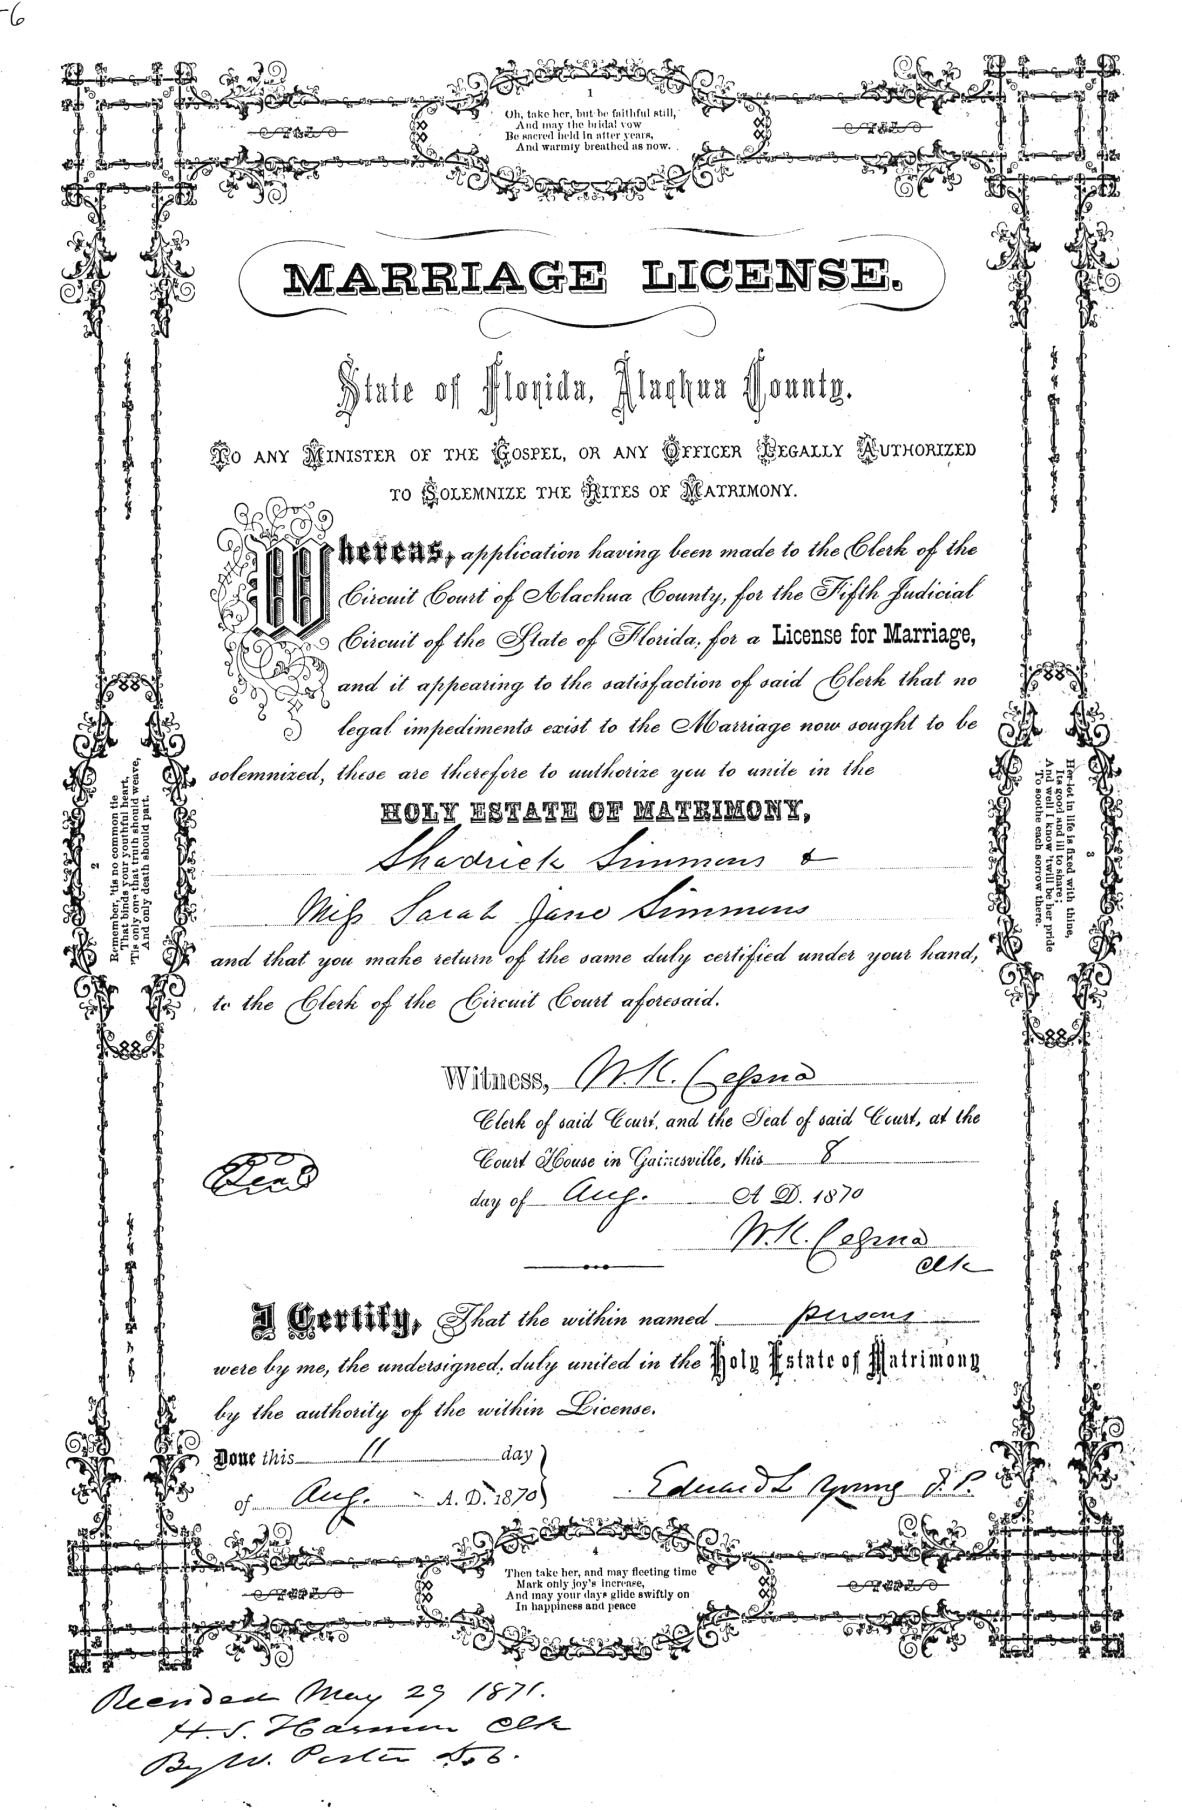 -6
1
Oh, take her, but be faithful still,
And may the bridal vow
Be sacred held in after years,
And warmly breathed as now.
MARRIAGE LICENSE.
State of Florida, Alachua County.
To any Minister of the Gospel, or any Officer Legally Authorized
to Solemnize the Rites of Matrimony.
Whereas, application having been made to the Clerk of the
Circuit Court of Alachua County, for the Fifth Judicial
Circuit of the State of Florida, for a License for Marriage,
and it appearing to the satisfaction of said Clerk that no
legal impediments exist to the Marriage now sought to be
solemnized, these are therefore to authorize you to unite in the
HOLY ESTATE OF MATRIMONY,
Shadrick Simmons &
Miss Sarah Jane Simmons
and that you make return of the same duly certified under your hand,
to the Clerk of the Circuit Court aforesaid.
2
Remember, 'tis no common tie
That binds your youthful heart,
'Tis only one that truth should weave,
And only death should part.
3
Her lot in life is fixed with thine,
Its good and ill to share;
And well I know 'twill be her pride
To soothe each sorrow there.
Witness, W. K. Cessna
Clerk of said Court, and the Seal of said Court, at the
Court House in Gainesville, this 8
day of Aug. A D. 1870
Seal
W. K. Cessna
Clk
I Certify, That the within named persons
were by me, the undersigned, duly united in the Holy Estate of Matrimony
by the authority of the within License.
Done this 11 day
of Aug. A. D. 1870
Edward L Young J. P.
4
Then take her, and may fleeting time
Mark only joy's increase,
And may your days glide swiftly on
In happiness and peace
Recorded May 29 1871.
H. S. Harmon Clk
By W. Porter